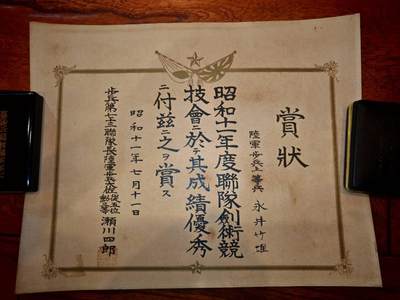 賞狀
陸軍歩兵上等兵 永井竹雄
昭和十一年度聯隊劍術競
技會ニ於テ其成績優秀
ニ付茲ニ之ヲ賞ス
昭和十一年七月十一日
歩兵第七十三聯隊長陸軍歩兵大佐 瀬川四郎